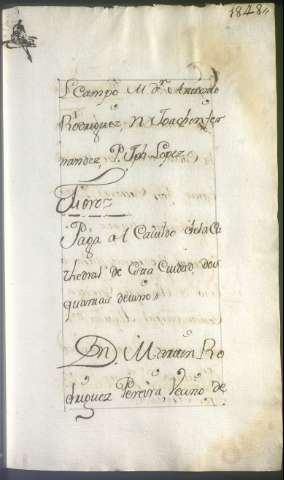 1848
L. Campo M. dn. Antonio
Rodriguez, N. Joachin Fer
nandez, P. Jph Lopez,
Paga al Cavildo de la Ca
thedral de esta Ciudad, dos
quartas de vino,
Dn. Martin Ro
driguez Pereira, Vecino de